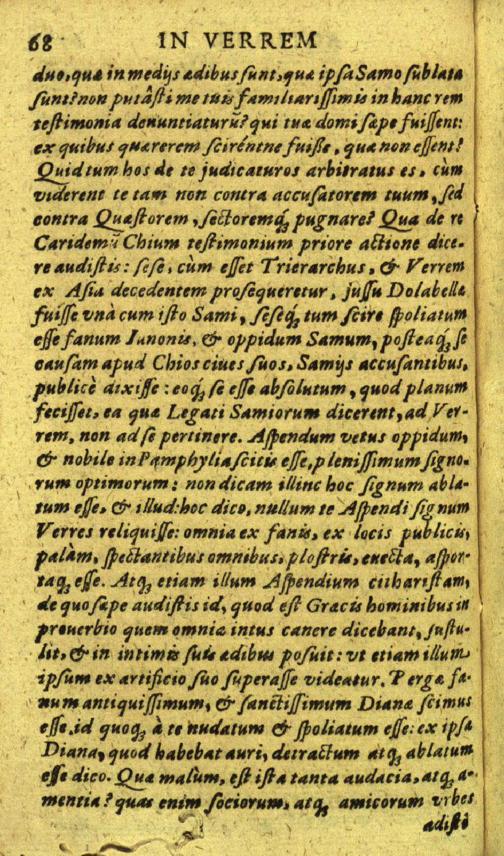 68 IN VERREM
duo, quæ in medijs ædibus sunt, quæ ipsa Samo sublata
sunt? non putâsti me tuis familiarissimis in hanc rem
testimonia denuntiaturũ? qui tuæ domi sæpe fuissent:
ex quibus quærerem scirentne fuiße, quæ non essent?
Quid tum hos de te judicaturos arbitratus es, cùm
viderent te tam non contra accusatorem tuum, sed
contra Quæstorem, sectoremq́; pugnare? Qua de re
Caridemũ Chium testimonium priore actione dice-
re audistis: sese, cùm esset Trierarchus, & Verrem
ex Asia decedentem prosequeretur, jussu Dolabellæ
fuisse vnà cum isto Sami, seseq́; tum scire spoliatum
esse fanum Iunonis, & oppidum Samum, posteaq́; se
causam apud Chios ciues suos, Samijs accusantibus,
publicè dixisse: eoq́; se esse absolutum, quod planum
fecisset, ea quæ Legati Samiorum dicerent, ad Ver-
rem, non ad se pertinere. Aspendum vetus oppidum,
& nobile in Pamphylia scitis esse, plenissimum signo-
rum optimorum: non dicam illinc hoc signum abla-
tum esse, & illud: hoc dico, nullum te Aspendi signum
Verres reliquisse: omnia ex fanis, ex locis publicis,
palàm, spectantibus omnibus, plostris, euecta, aspor-
taq́; esse. Atq́; etiam illum Aspendium citharistam,
de quo sæpe audistis id, quod est Græcis hominibus in
prouerbio quem omnia intus canere dicebant, sustu-
lit, & in intimis suis ædibus posuit: vt etiam illum
ipsum ex artificio suo superasse videatur. Pergæ fa-
num antiquissimum, & sanctissimum Dianæ scimus
esse, id quoq́; à te nudatum & spoliatum esse: ex ipsa
Diana, quod habebat auri, detractum atq́; ablatum
esse dico. Quæ malum, est ista tanta audacia, atq́; a-
mentia? quas enim sociorum, atq́; amicorum vrbes
adisti